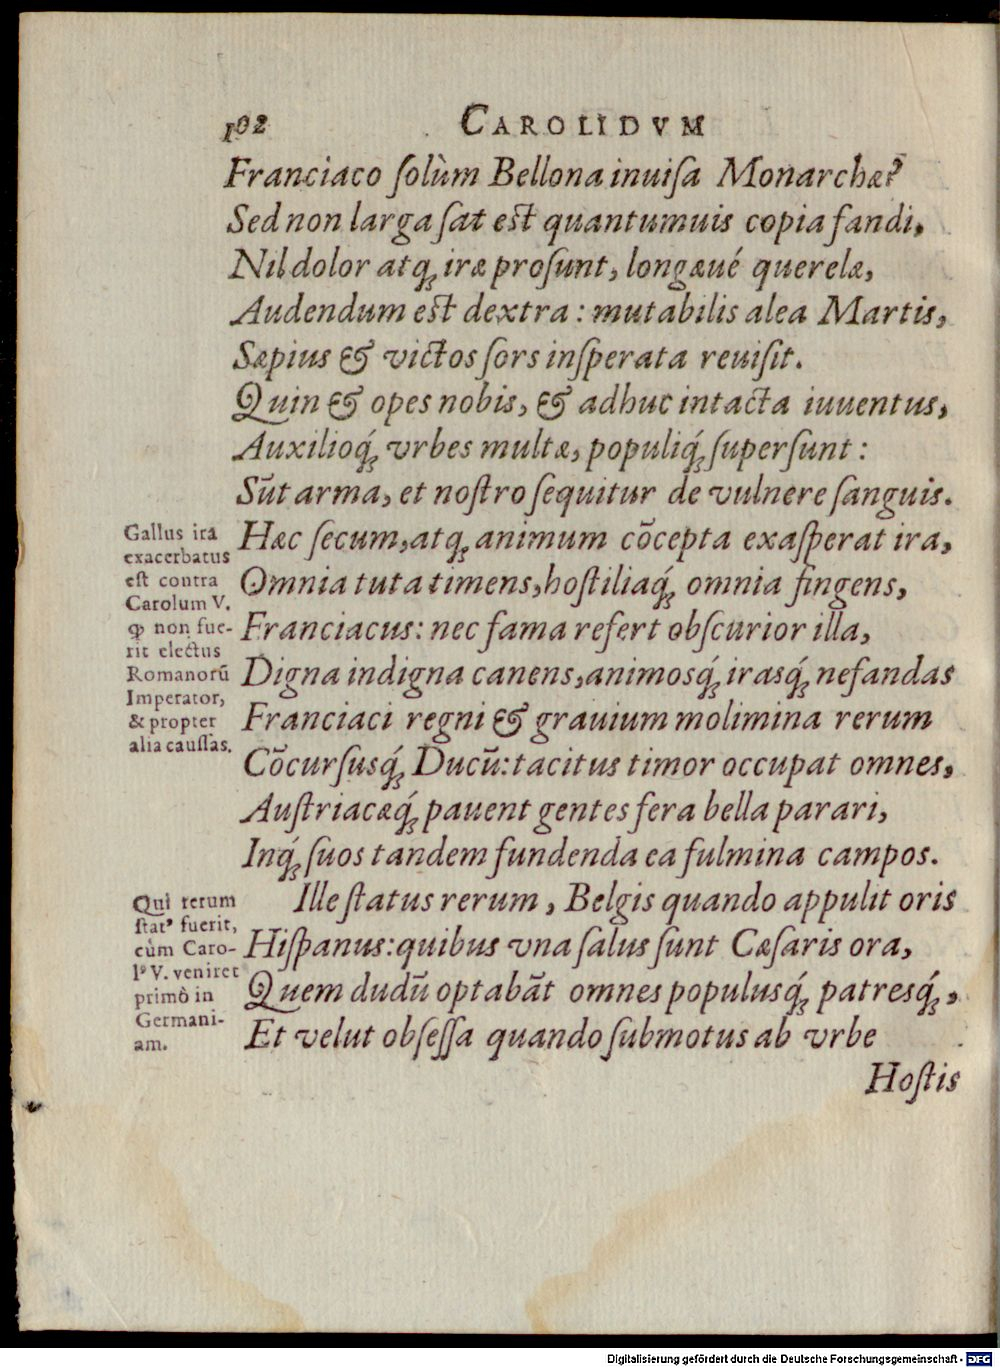 102
CAROLIDVM
Franciaco ſolùm Bellona inuiſa Monarchæ?
Sed non larga ſat est quantumuis copia fandi,
Nil dolor atq́ꝫ iræ proſunt, longæué querelæ,
Audendum est dextra: mutabilis alea Martis,
Sæpius & victos ſors inſperata reuiſit.
Quin & opes nobis, & adhuc intacta iuuentus,
Auxilioq́ꝫ vrbes multæ, populiq́ꝫ ſuperſunt:
Sūt arma, et noſtro ſequitur de vulnere ſanguis.
Hæc ſecum, atqꝫ animum cōcepta exaſperat ira,
Omnia tuta timens, hoſtiliaq́ꝫ omnia fingens,
Franciacus: nec fama refert obſcurior illa,
Digna indigna canens, animosq́ꝫ irasq́ꝫ nefandas
Franciaci regni & grauium molimina rerum
Cōcurſusq́ꝫ Ducū: tacitus timor occupat omnes,
Auſtriacæq́ꝫ pauent gentes fera bella parari,
Inq́ꝫ ſuos tandem fundenda ea fulmina campos.
Gallus ira
exacerbatus
eſt contra
Carolum V.
ꝙ non fue-
rit electus
Romanorū
Imperator,
& propter
alia cauſſas.
Ille ſtatus rerum, Belgis quando appulit oris
Hiſpanus: quibus vna ſalus ſunt Cæſaris ora,
Quem dudū optabāt omnes populusq́ꝫ patresq́ꝫ,
Et velut obſeſſa quando ſubmotus ab vrbe
Qui rerum
ſtatꝰ fuerit,
cùm Caro-
lꝰ V. veniret
primò in
Germani-
am.
Hoſtis
Digitalisierung gefördert durch die Deutsche Forschungsgemeinschaft - DFG